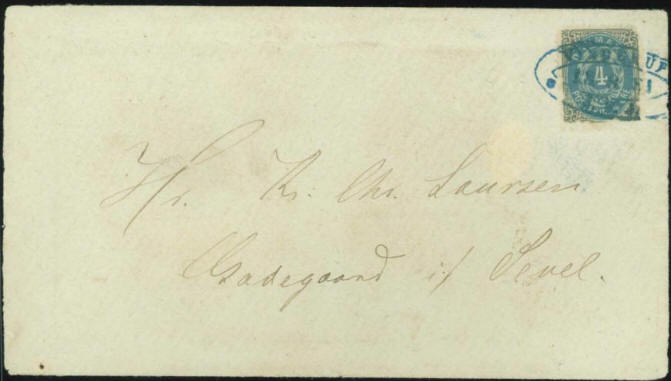 4
Hr. Kr. Chr. Laursen
Gadegaard i/ Sevel.